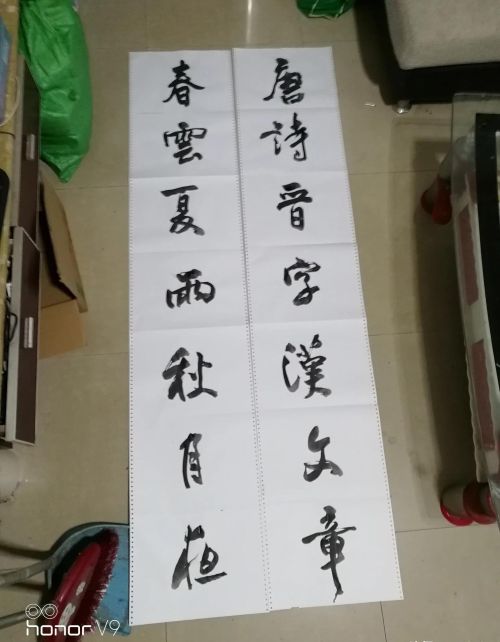 唐詩晋字漢文章
春雲夏雨秋月夜
honor V9